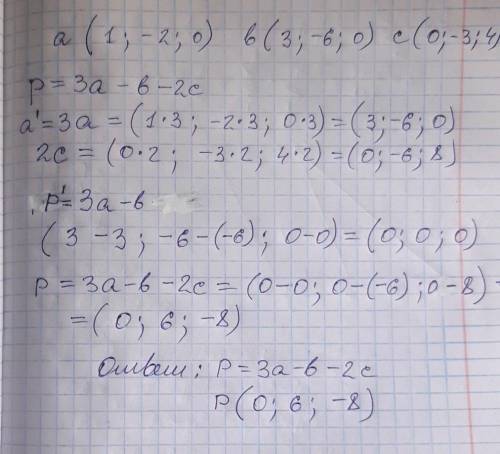 a (1; -2; 0) в(3; -6; 0) c(0; -3; 4)
p = 3a - в - 2c
a' = 3a = (1·3; -2·3; 0·3) = (3; -6; 0)
2c = (0·2; -3·2; 4·2) = (0; -6; 8)
p' = 3a - в
(3 - 3; -6 - (-6); 0 - 0) = (0; 0; 0)
p = 3a - в - 2c = (0-0; 0-(-6); 0-8) =
= (0; 6; -8)
Ответ: p = 3a - в - 2c
p (0; 6; -8)